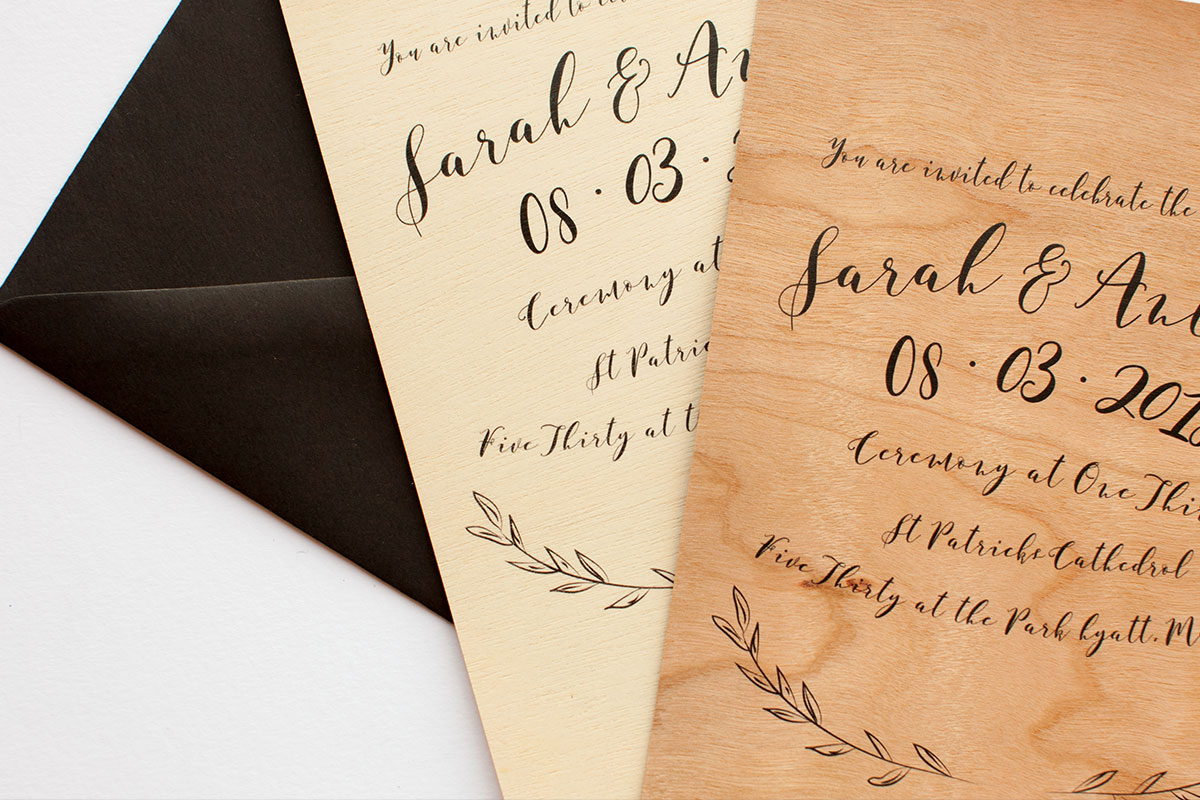 You are invited to
Sarah &
08 · 03 ·
Ceremony at
St
Five Thirty at
You are invited to celebrate the
Sarah &
08 · 03 ·
Ceremony at One
St Patricks Cathedrol
Five Thirty at the Park hyatt.